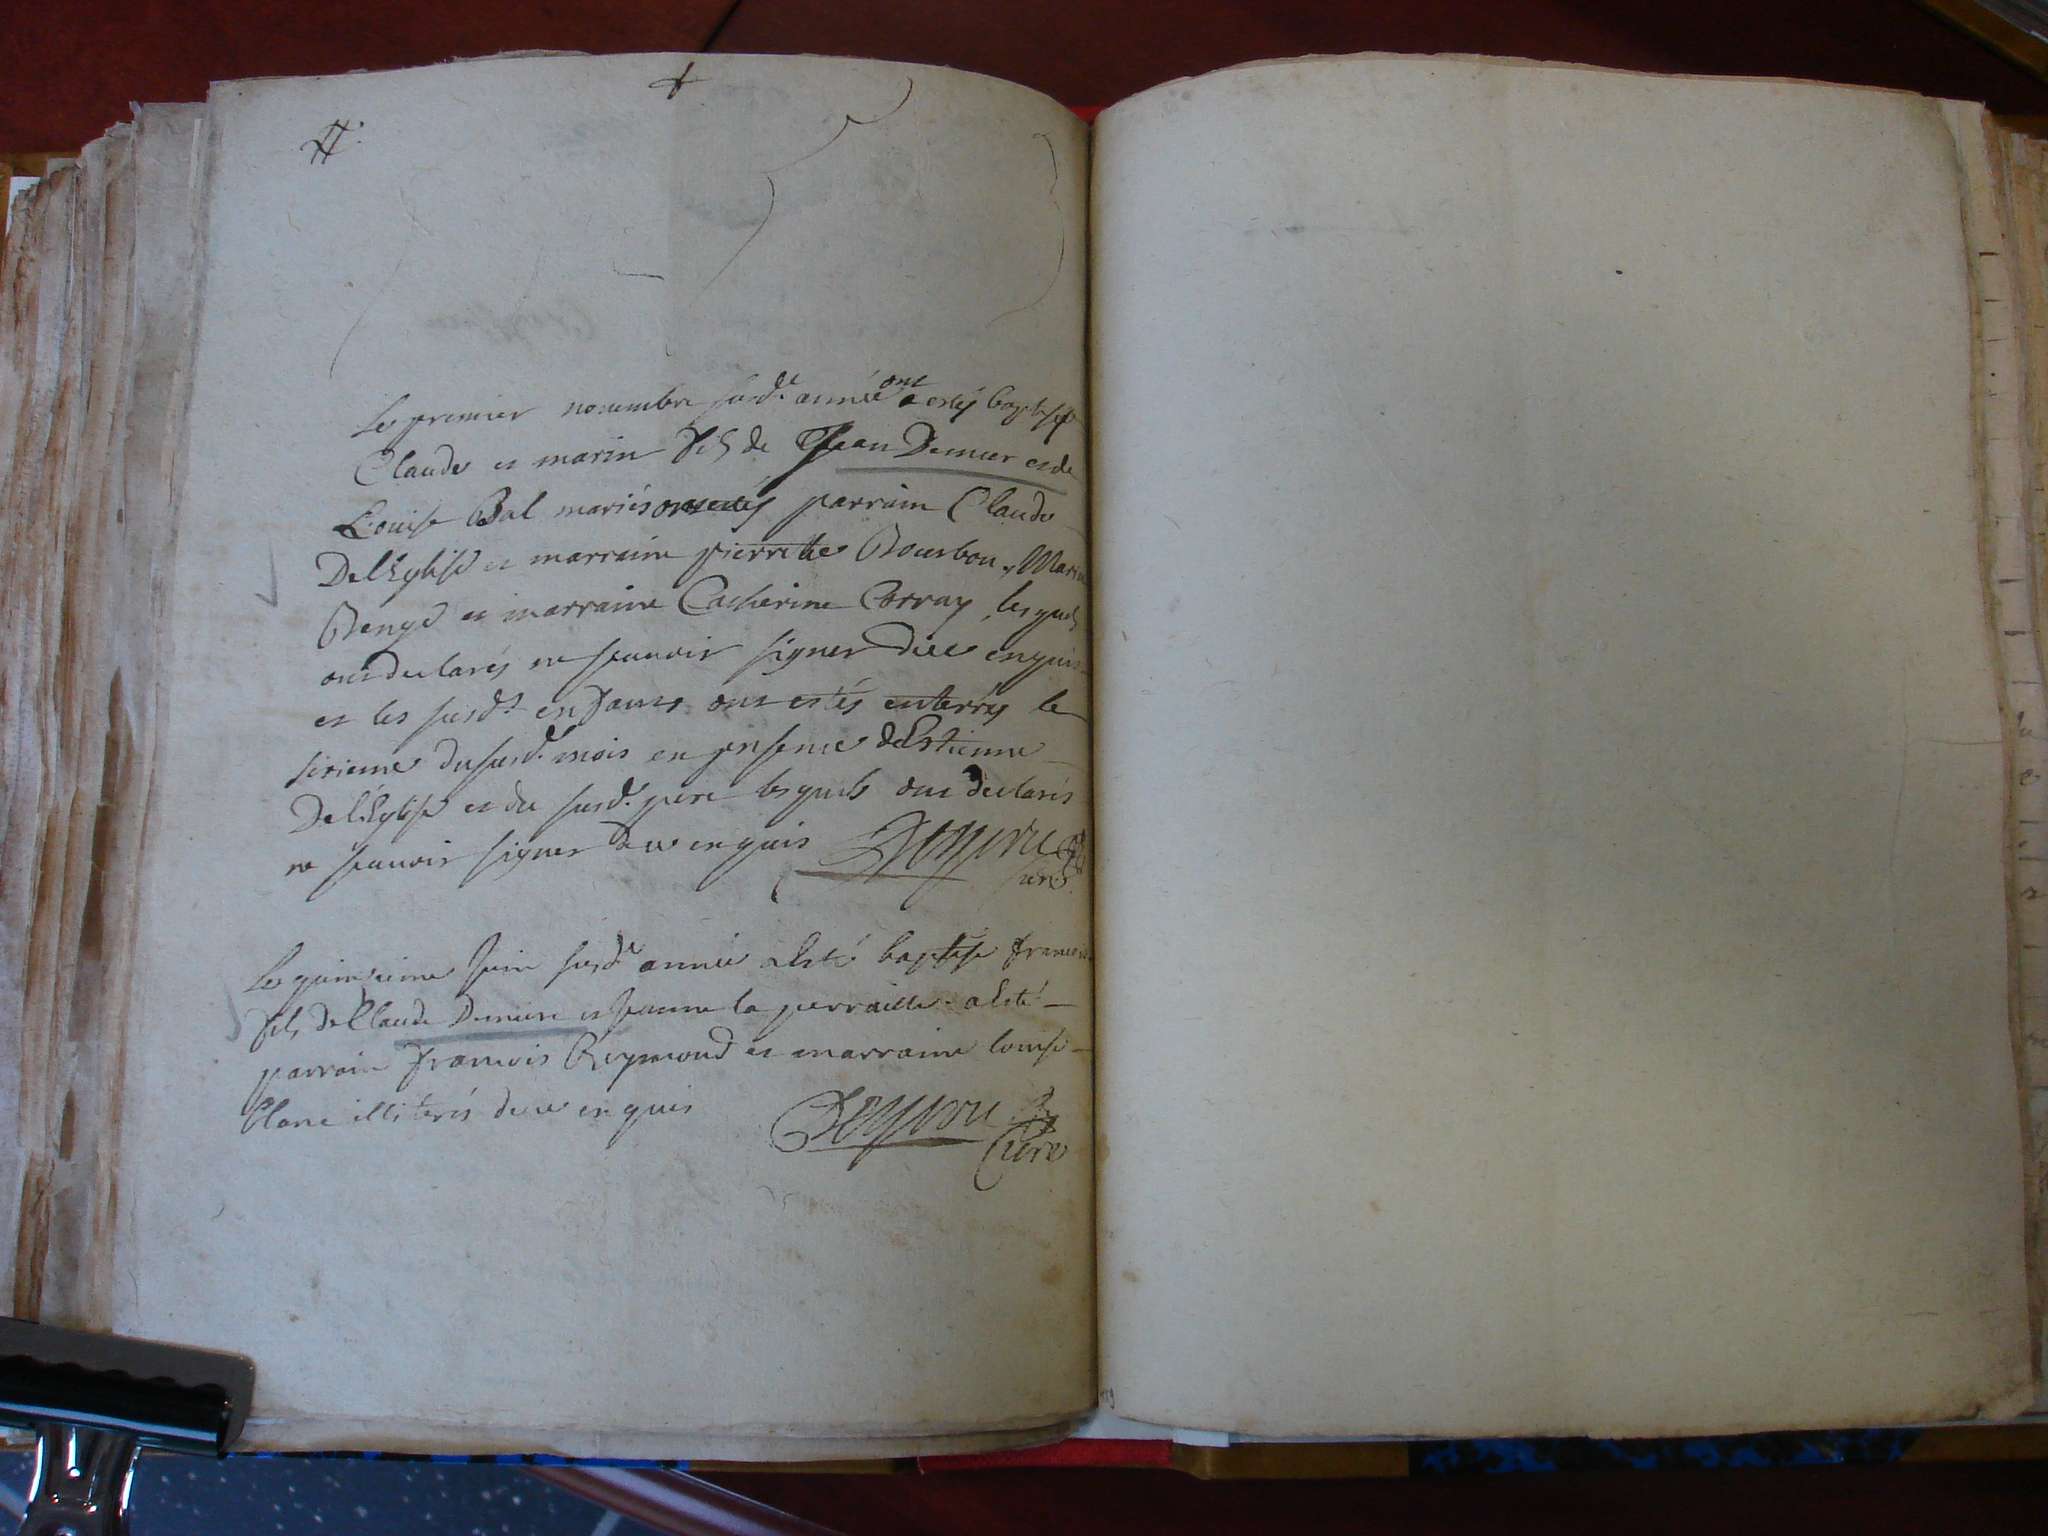 Le premier novembre susd.e année ont estés baptises
Claude et marin fils de Jean Demier et de
Louise Bal mariés ont estés parrain Claude
Del'Eglise et marraine pierrette Bourbon, Marin
et marraine Catherine Corray, lesquels
ont declarés ne scauoir signer duee enquis
et les susd.s enfants ont estés enterrés le
sixieme du susd. mois en presence d'Estienne
Del'Eglise et du susd. pere lesquels ont declarés
ne scauoir signer duee enquis
Curé
Le quinzieme Juin susd.e année a esté baptisé francois
fils de Claude Demiere et Jeanne la perraille a esté
parrain francois Reymond et marraine louise
Blanc illiterés duee enquis
Curé